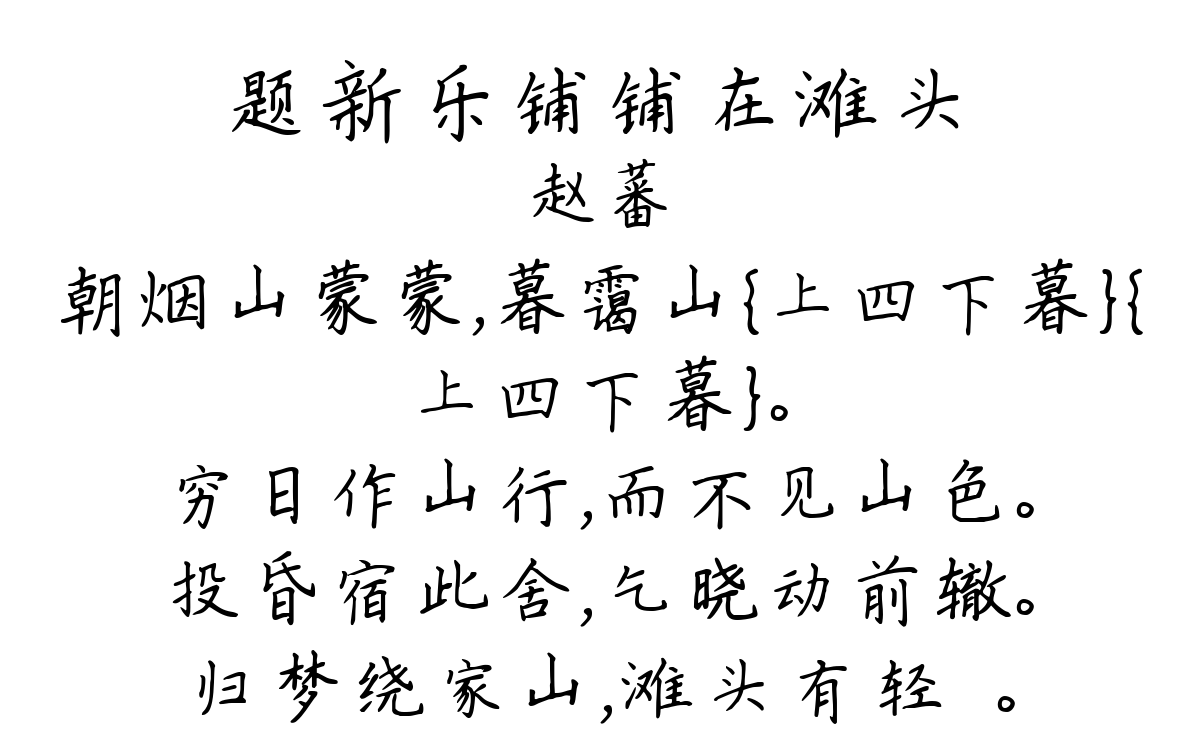 题新乐铺铺在滩头
赵蕃
朝烟山蒙蒙,暮霭山{上四下暮}{
上四下暮}。
穷日作山行,而不见山色。
投昏宿此舍,乞晓动前辙。
归梦绕家山,滩头有轻 。